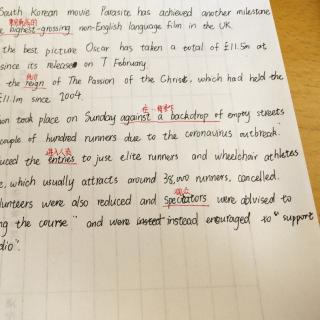 South Korean movie Parasite has achieved another milestone
highest-grossing non-English language film in the UK.
the best picture Oscar has taken a total of £11.5m at
since its release on 7 February.
the reign of The Passion of the Christ, which had held the
£11.1m since 2004.
took place on Sunday against a backdrop of empty streets
couple of hundred runners due to the coronavirus outbreak.
the entries to just elite runners and wheelchair athletes
which usually attracts around 38,000 runners, cancelled.
were also reduced and spectators were advised to
the course" and were instead to "support